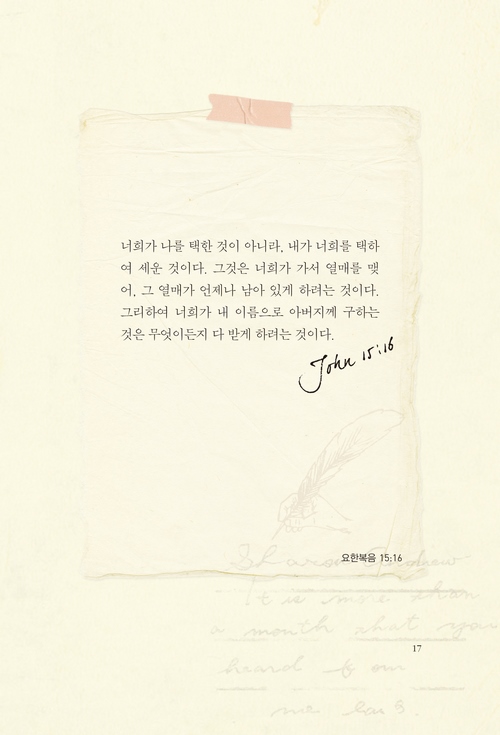 너희가 나를 택한 것이 아니라, 내가 너희를 택하
여 세운 것이다. 그것은 너희가 가서 열매를 맺
어, 그 열매가 언제나 남아 있게 하려는 것이다.
그리하여 너희가 내 이름으로 아버지께 구하는
것은 무엇이든지 다 받게 하려는 것이다.
John 15:16
요한복음 15:16
It is more than
a month that you
heard
me
17